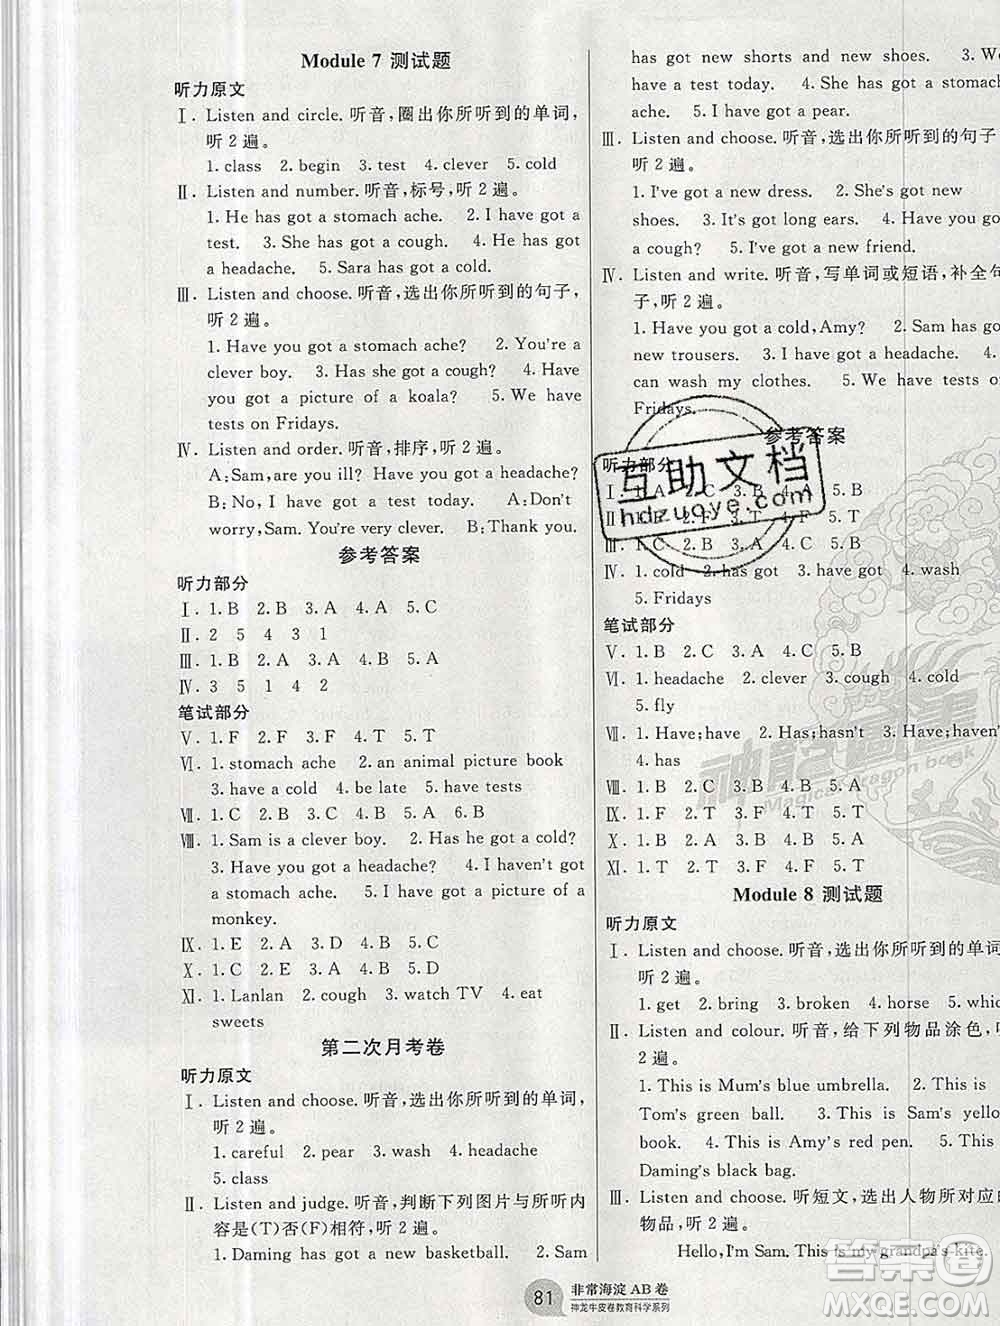 Module 7 测试题
听力原文
Ⅰ. Listen and circle. 听音,圈出你所听到的单词,
听 2 遍。
1. class 2. begin 3. test 4. clever 5. cold
Ⅱ. Listen and number. 听音,标号,听 2 遍。
1. He has got a stomach ache. 2. I have got a
test. 3. She has got a cough. 4. He has got
a headache. 5. Sara has got a cold.
Ⅲ. Listen and choose. 听音,选出你所听到的句子,
听 2 遍。
1. Have you got a stomach ache? 2. You're a
clever boy. 3. Has she got a cough? 4. Have
you got a picture of a koala? 5. We have
tests on Fridays.
Ⅳ. Listen and order. 听音,排序,听 2 遍。
A: Sam, are you ill? Have you got a headache?
B: No, I have got a test today. A: Don't
worry, Sam. You're very clever. B: Thank you.
参考答案
听力部分
Ⅰ. 1. B 2. B 3. A 4. A 5. C
Ⅱ. 2 5 4 3 1
Ⅲ. 1. B 2. B 3. A 4. B 5. A
Ⅳ. 3 5 1 4 2
笔试部分
Ⅴ. 1. F 2. F 3. F 4. T 5. T
Ⅵ. 1. stomach ache 2. an animal picture book
3. have a cold 4. be late 5. have tests
Ⅶ. 1. C 2. B 3. C 4. B 5. A 6. B
Ⅷ. 1. Sam is a clever boy. 2. Has he got a cold?
3. Have you got a headache? 4. I haven't got
a stomach ache. 5. I have got a picture of a
monkey.
Ⅸ. 1. E 2. A 3. D 4. B 5. C
Ⅹ. 1. C 2. E 3. A 4. B 5. D
Ⅺ. 1. Lanlan 2. cough 3. watch TV 4. eat
sweets
第二次月考卷
听力原文
Ⅰ. Listen and choose. 听音,选出你所听到的单词,
听 2 遍。
1. careful 2. pear 3. wash 4. headache
5. class
Ⅱ. Listen and judge. 听音,判断下列图片与所听内
容是(T)否(F)相符,听 2 遍。
1. Daming has got a new basketball. 2. Sam
has got new shorts and new shoes. 3. We
have a test today. 4. She has got a stomach
ache. 5. I have got a pear.
Ⅲ. Listen and choose. 听音,选出你所听到的句子
听 2 遍。
1. I've got a new dress. 2. She's got new
shoes. 3. It's got long ears. 4. Have you go
a cough? 5. I've got a new friend.
Ⅳ. Listen and write. 听音,写单词或短语,补全句
子,听 2 遍。
1. Have you got a cold, Amy? 2. Sam has go
new trousers. 3. I have got a headache. 4.
can wash my clothes. 5. We have tests on
Fridays.
参考答案
听力部分
Ⅰ. 1. A 2. C 3. B 4. A 5. B
Ⅱ. 1. F 2. F 3. T 4. F 5. T
Ⅲ. 1. C 2. B 3. A 4. C 5. B
Ⅳ. 1. cold 2. has got 3. have got 4. wash
5. Fridays
笔试部分
Ⅴ. 1. B 2. C 3. A 4. C 5. B
Ⅵ. 1. headache 2. clever 3. cough 4. cold
5. fly
Ⅶ. 1. Have; have 2. Has; hasn't 3. Have; haven't
4. has
Ⅷ. 1. B 2. C 3. B 4. B 5. A
Ⅸ. 1. F 2. T 3. F 4. T 5. T
Ⅹ. 1. B 2. A 3. B 4. A 5. A
Ⅺ. 1. T 2. T 3. F 4. F 5. T
Module 8 测试题
听力原文
Ⅰ. Listen and choose. 听音,选出你所听到的单词
听 2 遍。
1. get 2. bring 3. broken 4. horse 5. whic
Ⅱ. Listen and colour. 听音,给下列物品涂色,听
2 遍。
1. This is Mum's blue umbrella. 2. This is
Tom's green ball. 3. This is Sam's yello
book. 4. This is Amy's red pen. 5. This is
Daming's black bag.
Ⅲ. Listen and choose. 听短文,选出人物所对应的
物品,听 2 遍。
Hello, I'm Sam. This is my grandpa's kite.
81
非常海淀 AB 卷
神龙牛皮卷教育科学系列
互助文档
hdzuoye.com
神龙高车
Magical dragon book
答案圈
MXQE.COM